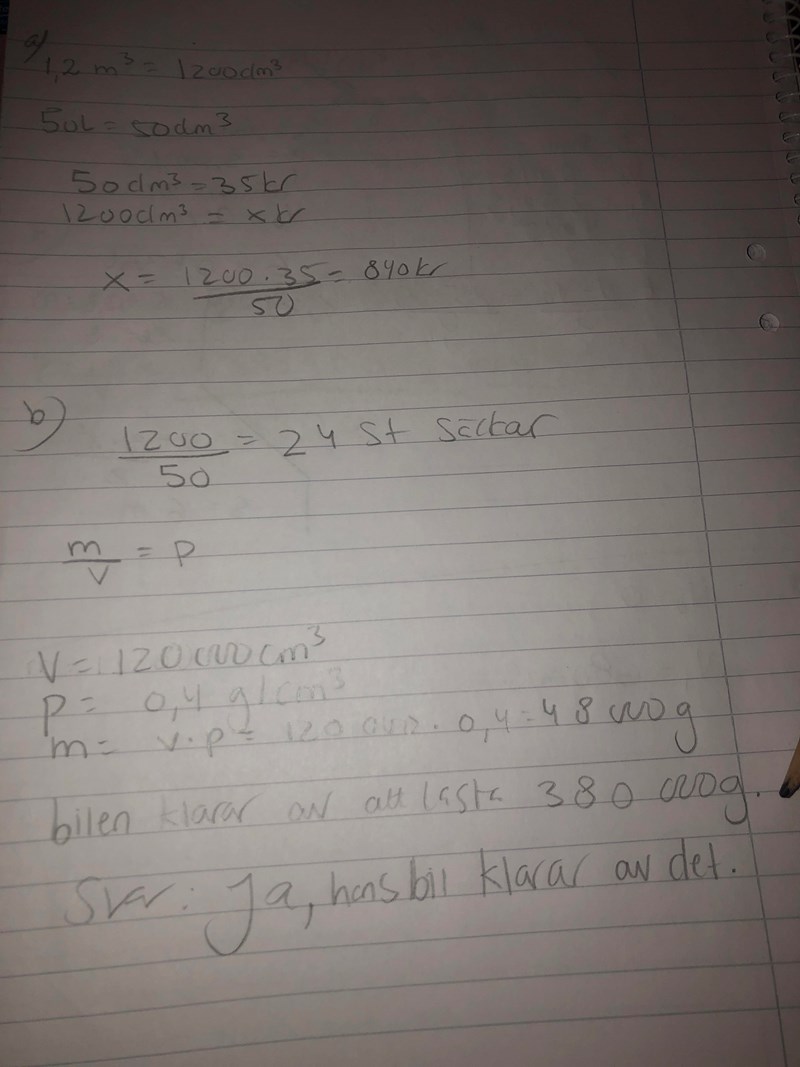 a)
1,2 m³ = 1200dm³
50L = 50dm³
50dm³ = 35kr
1200dm³ = x kr
x = 1200 · 35 / 50 = 840kr
b)
1200 / 50 = 24 st säckar
m / v = p
V = 120 000 cm³
p = 0,4 g/cm³
m = v · p = 120 000 · 0,4 = 48 000g
bilen klarar av att lasta 380 000g.
Svar: Ja, hans bil klarar av det.